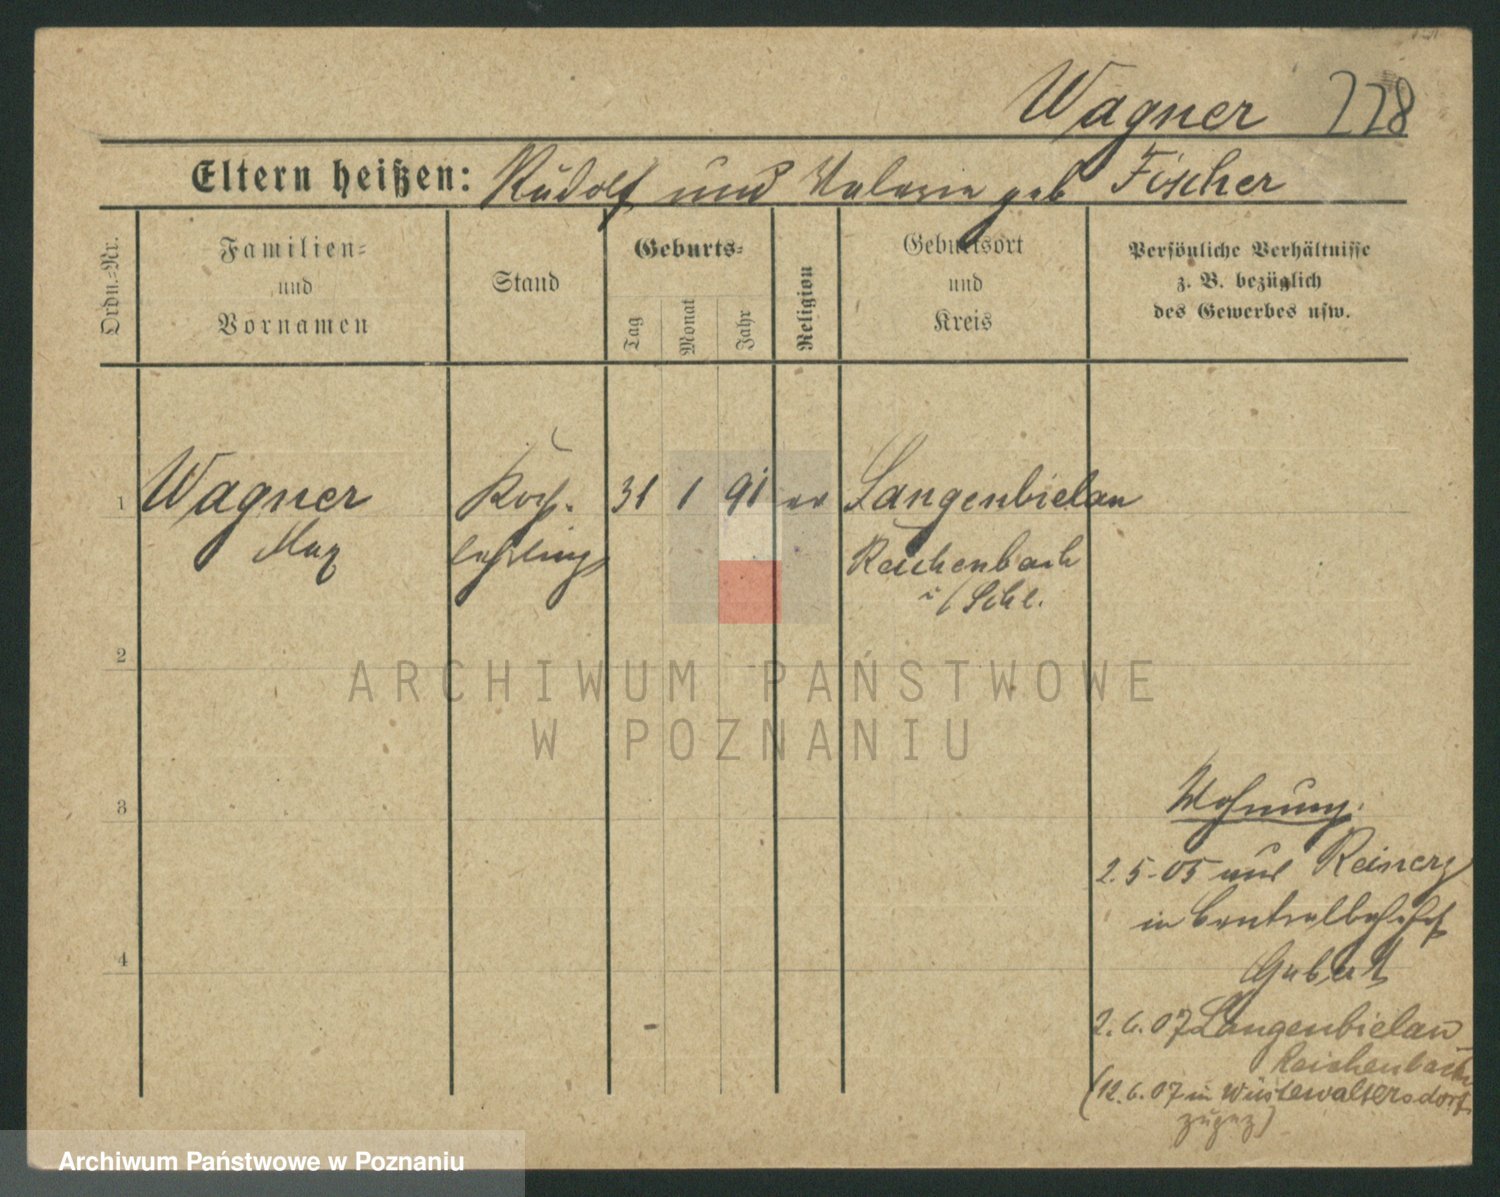 Wagner 228
Eltern heißen: Rudolf und Valerie geb Fischer
Ordn.=Nr.
Familien=
und
Vornamen
Stand
Geburts=
Tag
Monat
Jahr
Religion
Geburtsort
und
Kreis
Persönliche Verhältnisse
z. B. bezüglich
des Gewerbes usw.
1 Wagner Koch- 31 1 91 ev Langenbielau
Max lehrling Reichenbach
i/Schl.
2
ARCHIWUM PAŃSTWOWE
W POZNANIU
3
Wohnung:
2.5-05 aus Reinerz
in Centralbahnhof
4
2.6.07 Langenbielau
Reichenbach
(12.6.07 in Wüstewaltersdorf
zugez)
Archiwum Państwowe w Poznaniu